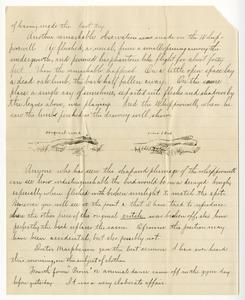 of having made the last day.
Another remarkable observation was made on the Whip-
poorwill. My flushed, as usual, from a small opening among the
undergrowth, and pursued his phantom like flight for about forty
feet. Then the remarkable happened. On a little open space lay
a dead oak limb, the bark half fallen away. On the same
place a single ray of sunshine, reported with flecks and shadows by
the leaves above, was playing. And the Whippoorwill, when he
saw the limb, perched in the drawing will show.
Anyone who has seen the shape and plumage of the whippoorwill
can see how indistinguishable the bird would be to a decayed bough,
especially when flecked with broken sunlight to match the spots.
However you will see at the point a that I have tried to reproduce
how the other piece of the original crotch was broken off, also how
perfectly the bird replaces the same. Of course this position may
have been accidental, but also possibly not.
Doctor Macpherson gave the best sermon I have ever heard
this morning, on the subject of clothes.
Fourth form's Prom or annual dance came off in the gym day
before yesterday. It was a very elaborate affair.